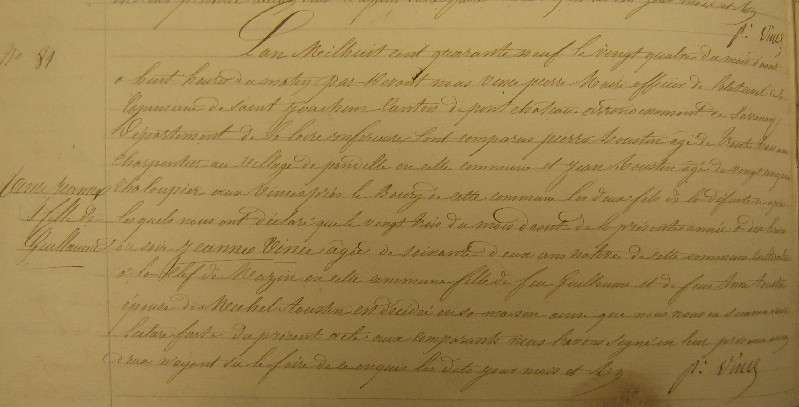 p: Vince
N° 81
L'an Mil huit cent quarante neuf le vingt quatre du mois d'aout
a huit heures du matin par devant nous Vince pierre Maire officier de l'etat civil de la
Commune de saint Joachim Canton de pont chateau arrondissement de Savenay
Département de la loire inférieure sont comparus pierre Aoustin agé de trente trois ans
Charpentier au village de pendille en cette commune et Jean Aoustin agé de vingt cinq ans
Chaloupier aux Vinces près le Bourg de cette commune les deux fils de la défunte
lesquels nous ont déclaré que le vingt trois du mois d'aout de la présente année a dix heures
du soir Jeanne Vince agée de soixante deux ans native de cette commune
a la Nef de Mazin en cette commune fille de feu Guillaume et de feue Anne Aoustin
épouse de Michel Aoustin est décédée en sa maison
lecture faite du présent acte aux comparants nous l'avons signé en leur présence
ceux n'ayant su le faire de ce enquis les dits jour mois et an p: Vince
fille de
Guillaume